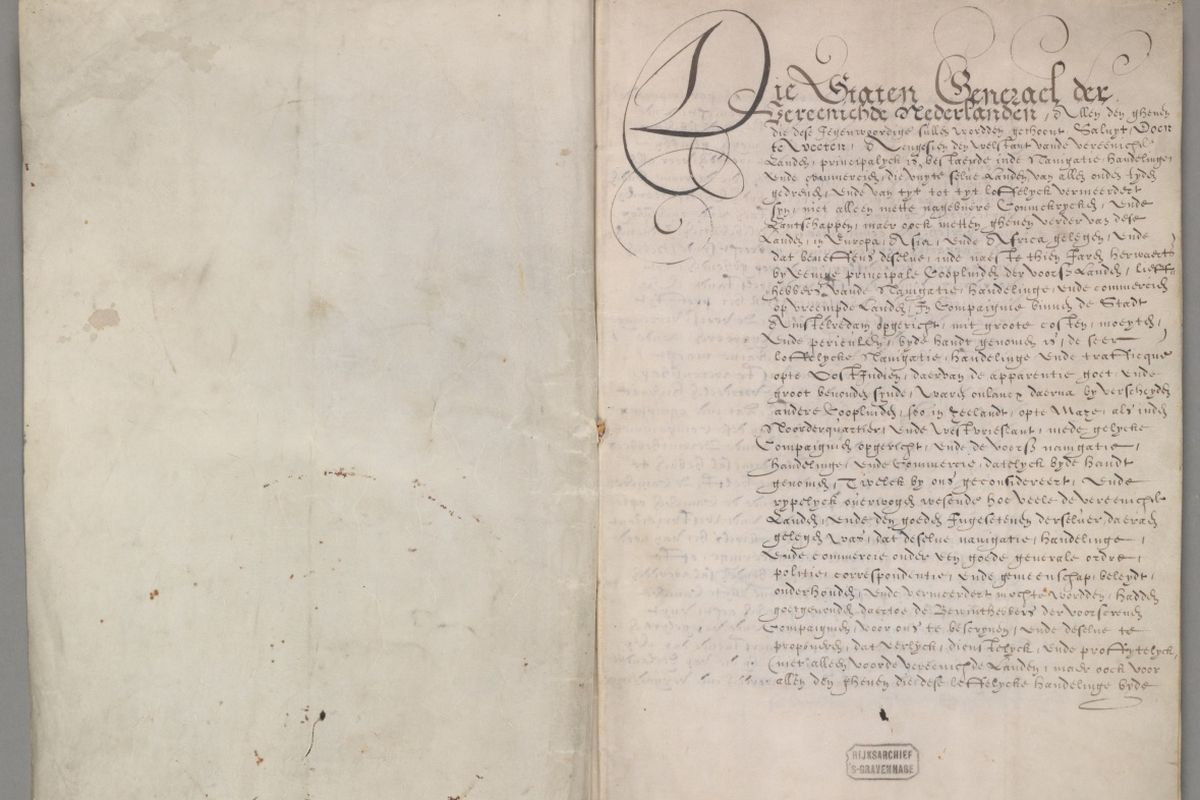 Die Staten Generael der
Vereenichde Nederlanden, Allen den ghenen
die dese Jegenwoordige sullen wordden gethoont, Saluyt, Doen
te weeten, Alsoe gesien den welstant vande vereenichde
Landen, principalyck is bestaende inde Navigatie, handelinge,
ende commercien, die vuyte selve Landen van allen ouden tyden
gedreven, ende van tyt tot tyt loffelyck vermeerdert
syn, niet alleen mette nagebuere Coninckrycken, ende
Lantschappen, maer oock metten ghenen verder van dese
Landen, in Europa, Asia, ende Africa gelegen, Ende
dat beneffens deselve, inde naeste thien Jaren herwaerts
by eenige principale Coopluiden der voorsz Landen, lieff-
hebbers vande Navigatie, handelinge, ende commercien
op vreempde Landen, In Compaignie binnen de Stadt
Amstelredam opgericht, mit groote costen, moeyten,
ende periculen, byde handt genomen is, de seer
loffelycke Navigatie, handelinge ende trafficque
opte Oost Indien, daervan de apparentie goet, ende
groot bevonden synde, waren onlancx daerna by verscheyden
andere Coopluiden, soo in Zeelandt, opte Maze, als inden
Noorderquartier, ende Westvrieslant, mede gelycke
Compaignien opgericht, ende de voorsz navigatie,
handelinge, ende Commercie, datelyck byde handt
genomen, Twelck by ons geconsidereert, Ende
rypelyck overwogen wesende hoe veele de vereenichde
Landen, ende den goeden Ingesetenen derselver, daeraen
gelegen was, dat deselve navigatie, handelinge,
ende commercie onder een goede generale ordre,
politie, correspondentie, ende gemeenschap, beleydt,
onderhouden, ende vermeerdert mochte wordden, hadden
goetgevonden daertoe de Bewinthebbers der voorscreven
Compaignien voor ons te bescryven, ende deselve te
proponeren, dat eerlyck, dienstelyck, ende proffytelyck,
niet alleen voorde vereenichde Landen, maer oock voor
allen den ghenen die dese loffelycke handelinge byde
RIJKSARCHIEF
S-GRAVENHAGE